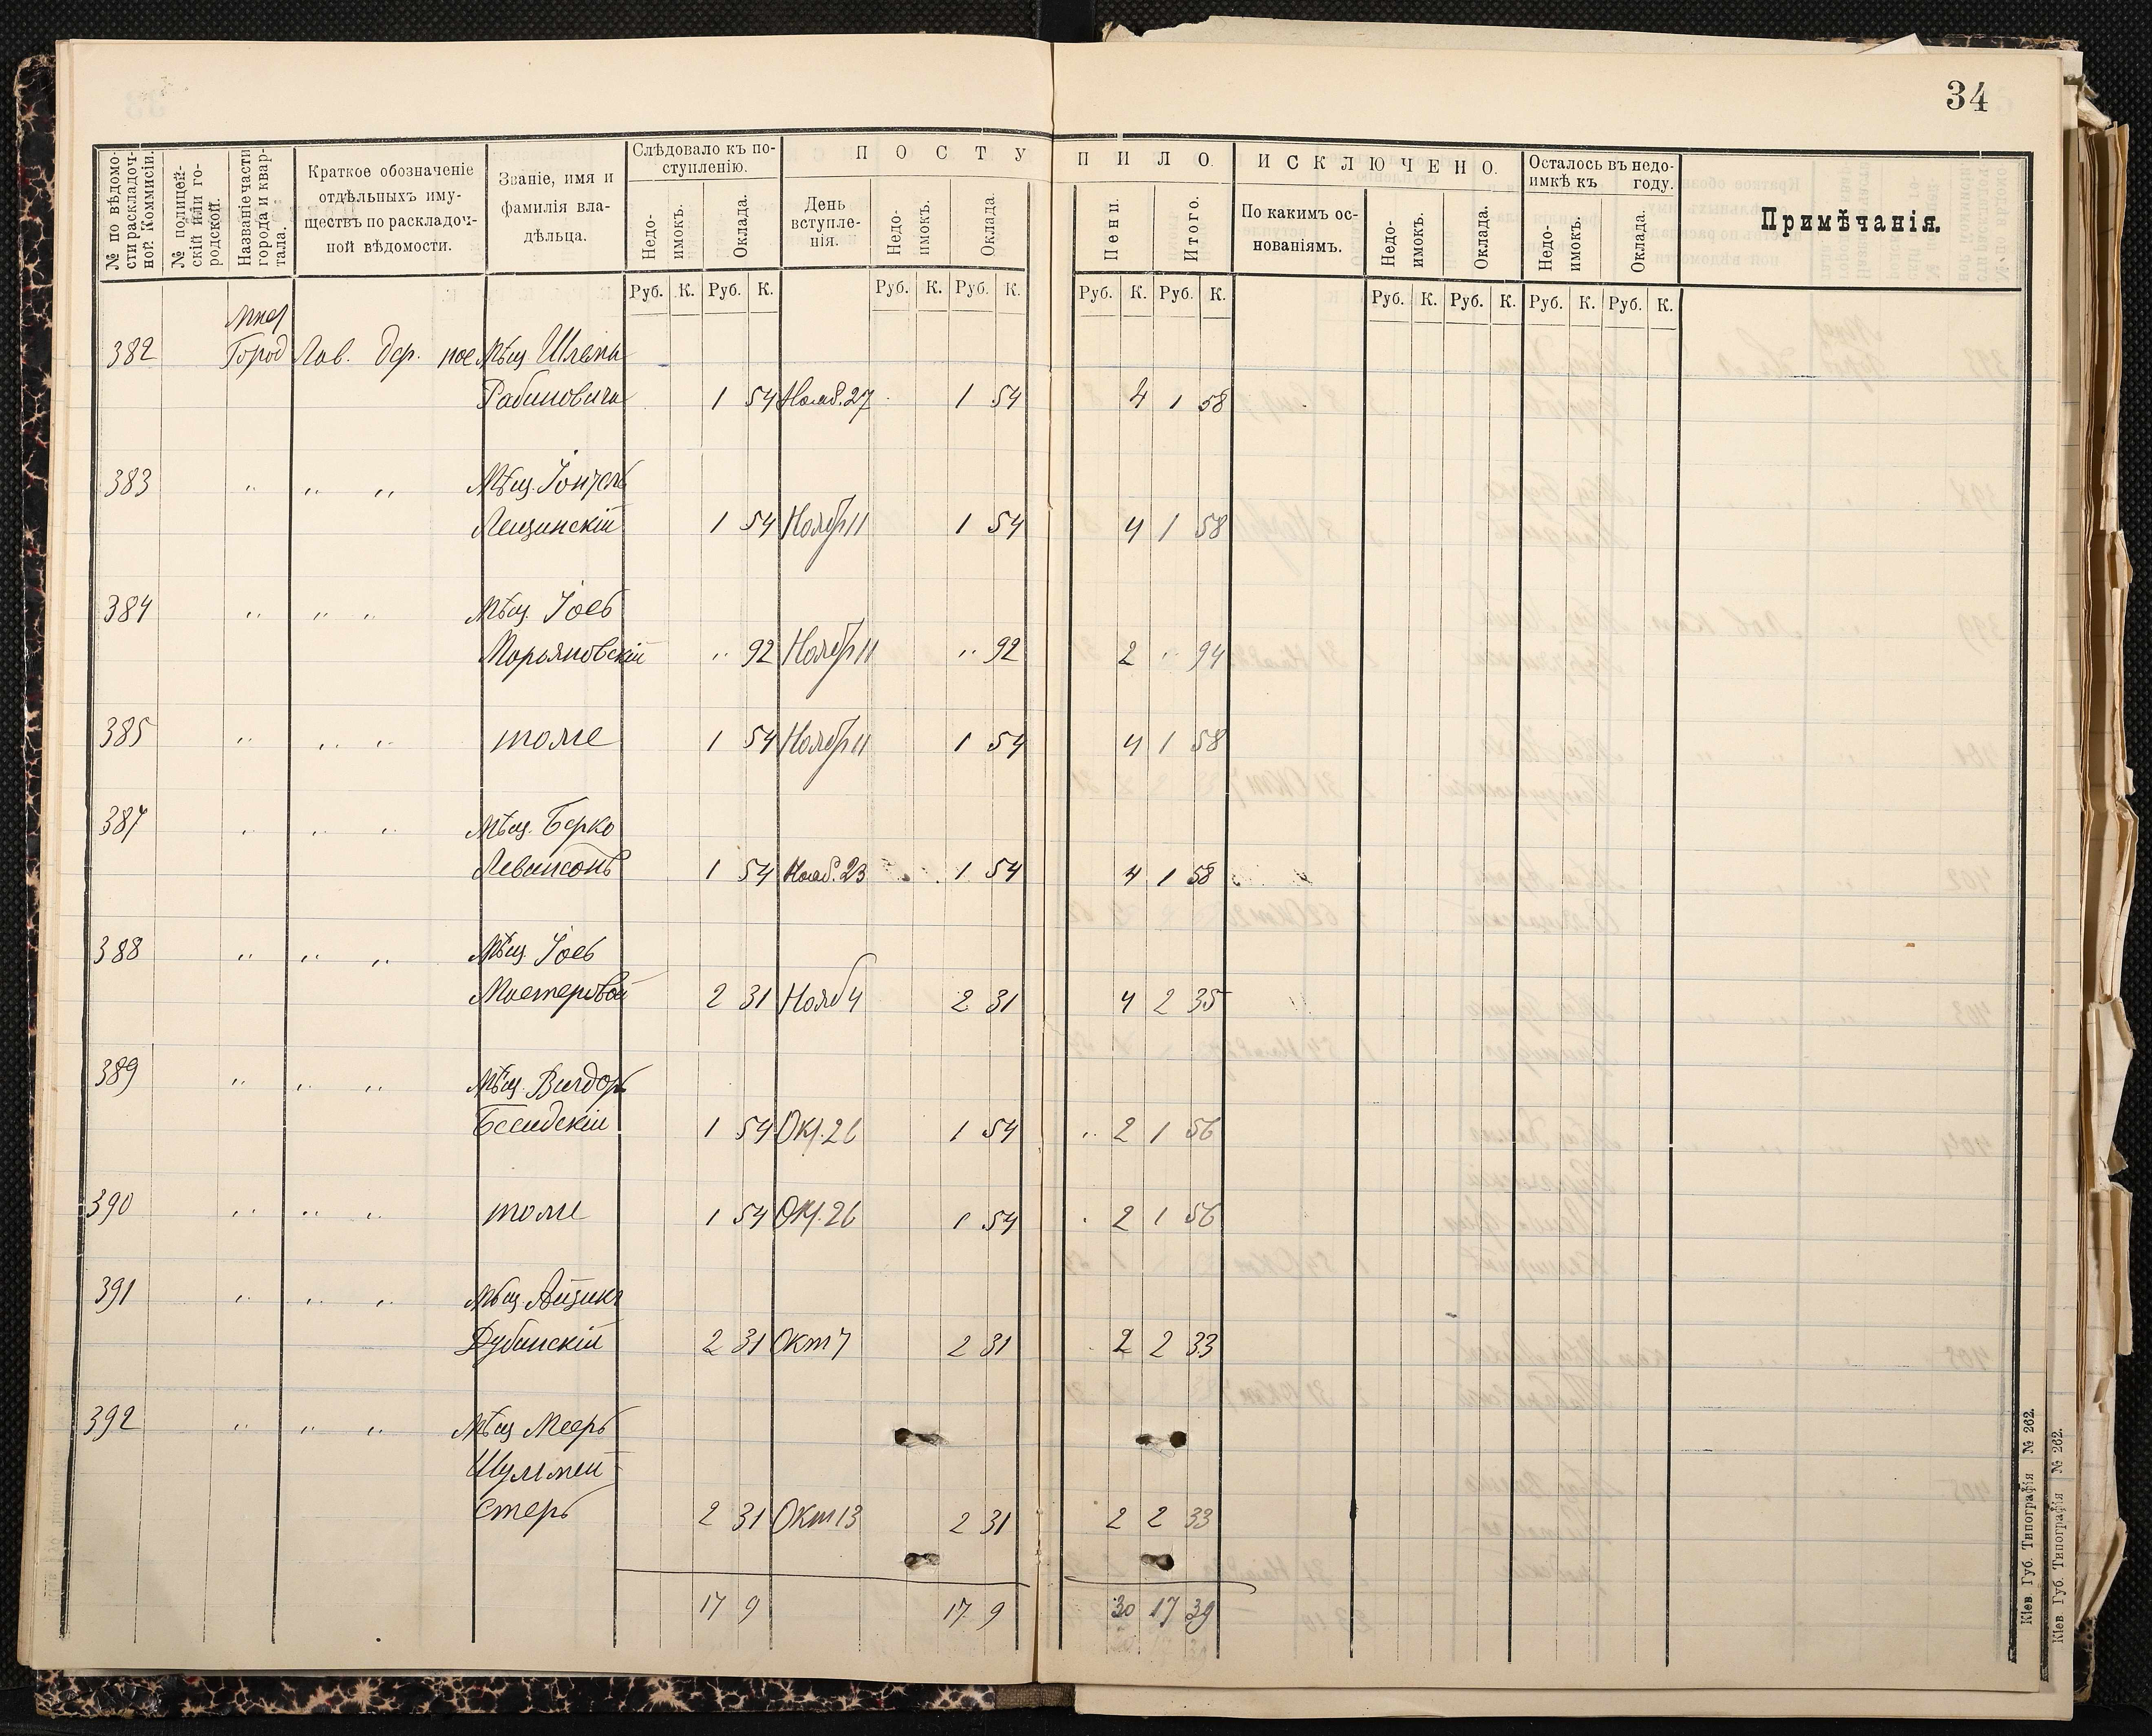 34
№ по вѣдомо-
сти раскладоч-
ной Коммисіи.
№ полицей-
скій или го-
родской.
Названіе части
города и квар-
тала.
Краткое обозначеніе
отдѣльныхъ иму-
ществъ по расклaдоч-
ной вѣдомости.
Званіе, имя и
фамилія вла-
дѣльца.
Слѣдовало къ по-
ступленію.
Недо-
имокъ.
Оклада.
ПОСТУ
День
вступле-
нія.
Недо-
имокъ.
Оклада.
ПИЛО.
Пени.
Итого.
ИСКЛЮЧЕНО.
По какимъ ос-
нованіямъ.
Недо-
имокъ.
Оклада.
Осталось въ недо-
имкѣ къ году.
Недо-
имокъ.
Оклада.
Примѣчанія.
Руб. К. Руб. К. Руб. К. Руб. К. Руб. К. Руб. К. Руб. К. Руб. К. Руб. К. Руб. К.
382 Город Лав. дер. Мѣщ Шлема
Рабиновичъ 1 54 Нояб. 27 1 54 4 1 58
383 " " " Мѣщ.
Лещинскій 1 54 Ноябр 11 1 54 4 1 58
384 " " " Мѣщ. Іосъ
Марьяновскій " 92 Ноябр 11 " 92 2 " 94
385 " " " тоже 1 54 Ноябр 11 1 54 4 1 58
387 " " " Мѣщ. Берко
Левинсонъ 1 54 Нояб. 23 1 54 4 1 58
388 " " " Мѣщ Іосъ
Мастеровой 2 31 Нояб 4 2 31 4 2 35
389 " " " Мѣщ. Вигдоръ
Бесидскій 1 54 Окт. 26 1 54 " 2 1 56
390 " " " тоже 1 54 Окт. 26 1 54 2 1 56
391 " " " Мѣщ. Айзикъ
Дубинскій 2 31 Окт 7 2 31 2 2 33
392 " " " Мѣщ Мееръ
Шульмей-
стеръ 2 31 Окт 13 2 31 2 2 33
17 9 17 9 30 17 39
Кіев. Губ. Типографія № 262.
Кіев. Губ. Типографія № 262.